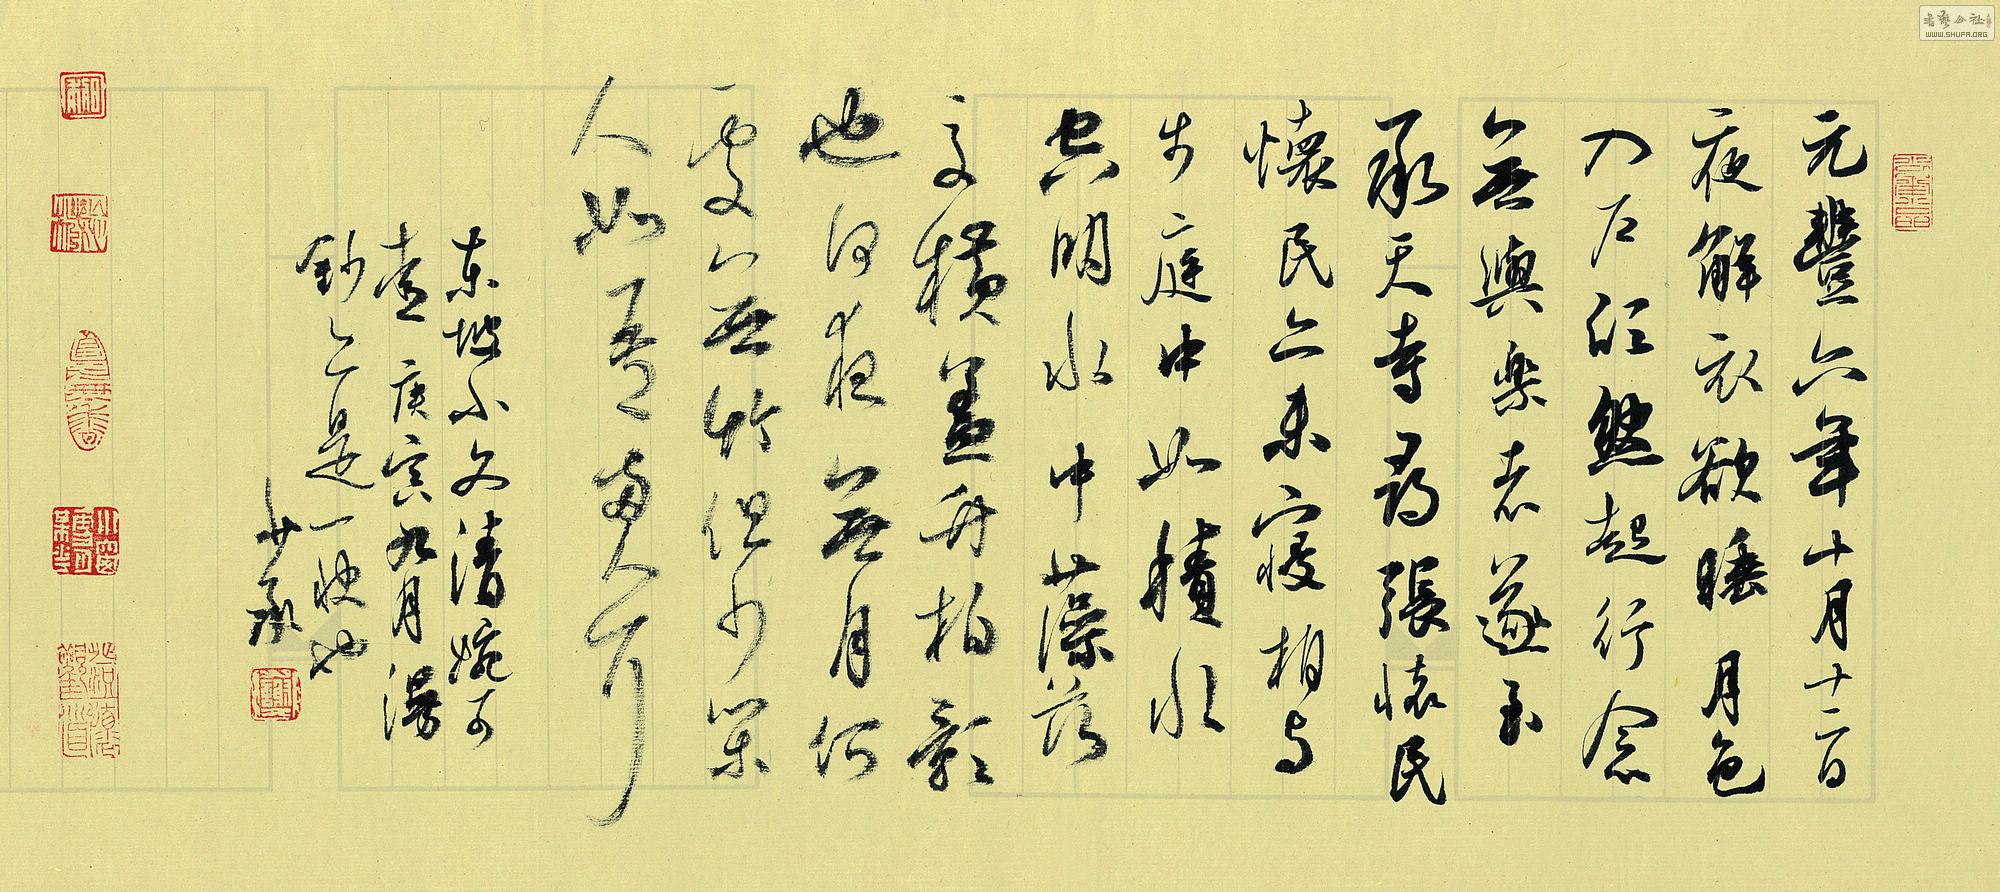 元豐六年十月十二日
夜解衣欲睡月色
入户欣然起行念
無與樂者遂至
承天寺尋張懷民
懷民亦未寢相与
步庭中如積水
空明水中藻荇
交横蓋竹柏影
也何夜無月何
處無竹但少閑
人如吾兩人耳
東坡小文清婉可
喜 庚寅九月漫
鈔之是一快也
書藝公社
WWW.SHUFA.ORG